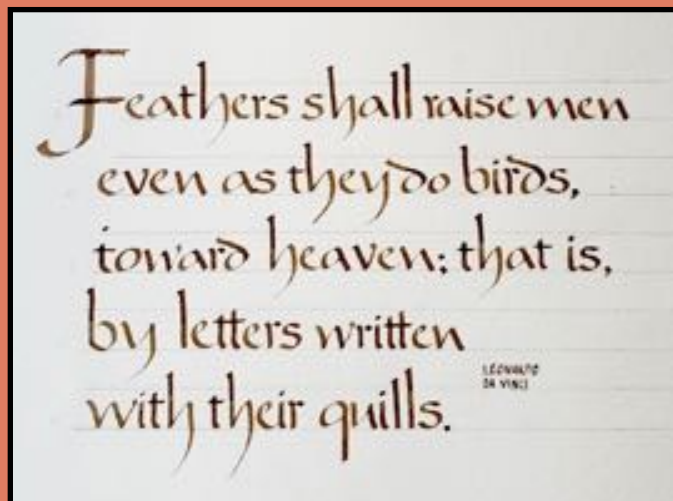 Feathers shall raise men
even as they do birds,
toward heaven: that is,
by letters written
with their quills.
LEONARDO
DA VINCI